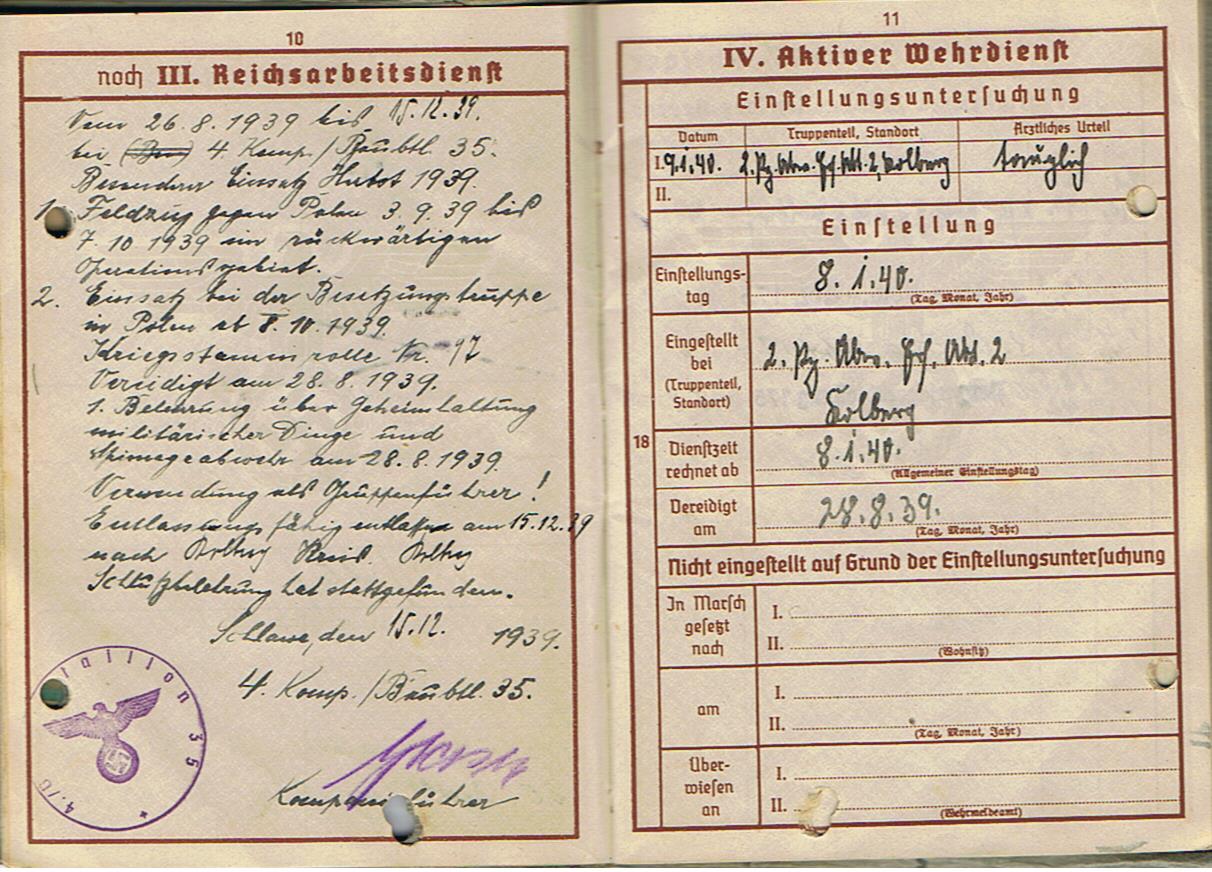 10
noch III. Reichsarbeitsdienst
Vom 26.8.1939 bis 15.12.39.
bei 4. Komp./Baubtl. 35.
Besonderer Einsatz Herbst 1939.
1. Feldzug gegen Polen 3.9.39 bis
7.10 1939 im rückwärtigen
Operationsgebiet.
2. Einsatz bei der Besetzungstruppe
in Polen ab 8.10.1939.
Kriegsstammrolle Nr. 97
Vereidigt am 28.8.1939.
1. Belehrung über Geheimhaltung
militärischer Dinge und
Spionageabwehr am 28.8.1939.
Verwendung als Gruppenführer!
Entlassungsfähig entlassen am 15.12.39
nach Kreis
Schlußbelehrung hat stattgefunden.
Schlawe, den 15.12. 1939.
4. Komp./Baubtl. 35.
Kompanieführer
taillon 35
11
IV. Aktiver Wehrdienst
Einstellungsuntersuchung
Datum Truppenteil, Standort Ärztliches Urteil
I. 9.1.40. 2. Pz. Abw. Ers. Abt. 2, Kolberg tauglich
II.
Einstellung
Einstellungs-
tag 8.1.40.
(Tag, Monat, Jahr)
Eingestellt
bei 2. Pz. Abw. Ers. Abt. 2
(Truppenteil,
Standort) Kolberg
18
Dienstzeit
rechnet ab 8.1.40.
(Allgemeiner Einstellungstag)
Vereidigt
am 28.8.39.
(Tag, Monat, Jahr)
Nicht eingestellt auf Grund der Einstellungsuntersuchung
In Marsch
gesetzt
nach
I.
II.
(Wohnsitz)
am
I.
II.
(Tag, Monat, Jahr)
Über-
wiesen
an
I.
II.
(Wehrmeldeamt)